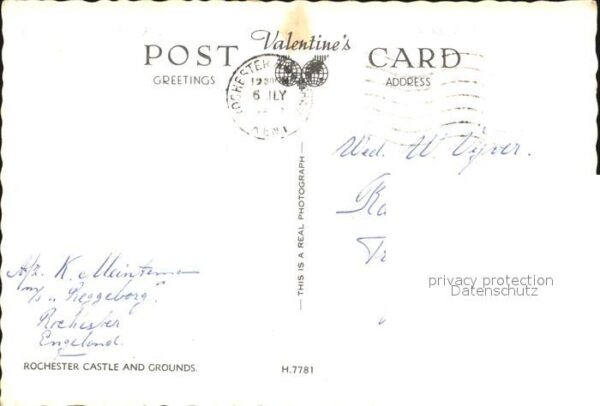 Valentine's
POST CARD
GREETINGS
ADDRESS
ROCHESTER
6 JLY
KENT
THIS IS A REAL PHOTOGRAPH
Wed. W. Vyver.
Ra
Afz. K. Meintsma
m/s "Reggeborg".
Rochester
Engeland.
privacy protection
Datenschutz
ROCHESTER CASTLE AND GROUNDS.
H.7781